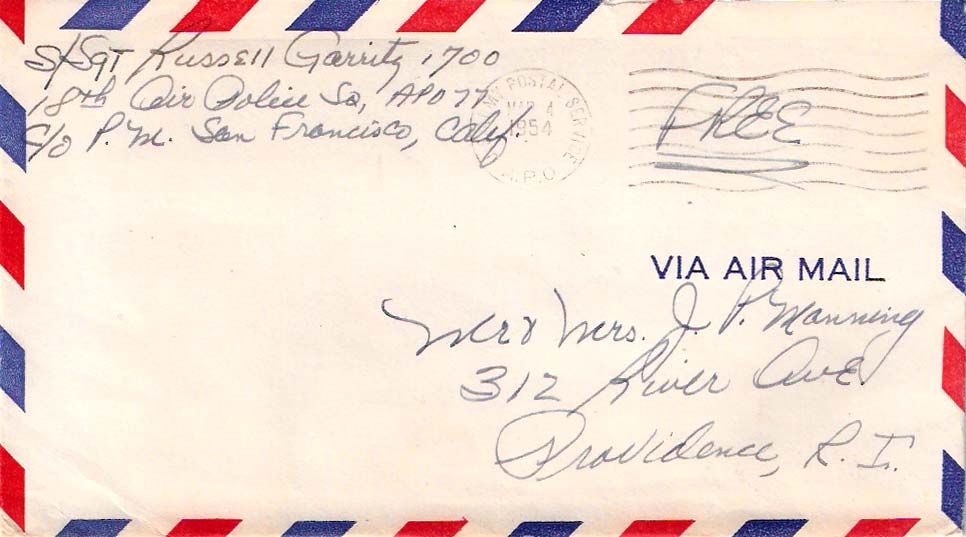 S/Sgt Russell Garrity 1700
18th Air Police Sq, APO 77
c/o P.M. San Francisco, Calif.
ARMY POSTAL SERVICE
MAR 4
1954
A.P.O.
FREE
VIA AIR MAIL
Mr & Mrs. J. P. Manning
312 River Ave.
Providence, R. I.